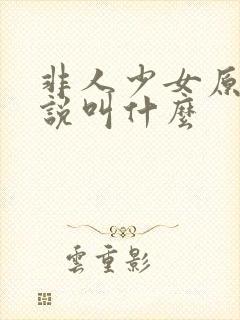 非人少女原
說叫什麼
雲重影